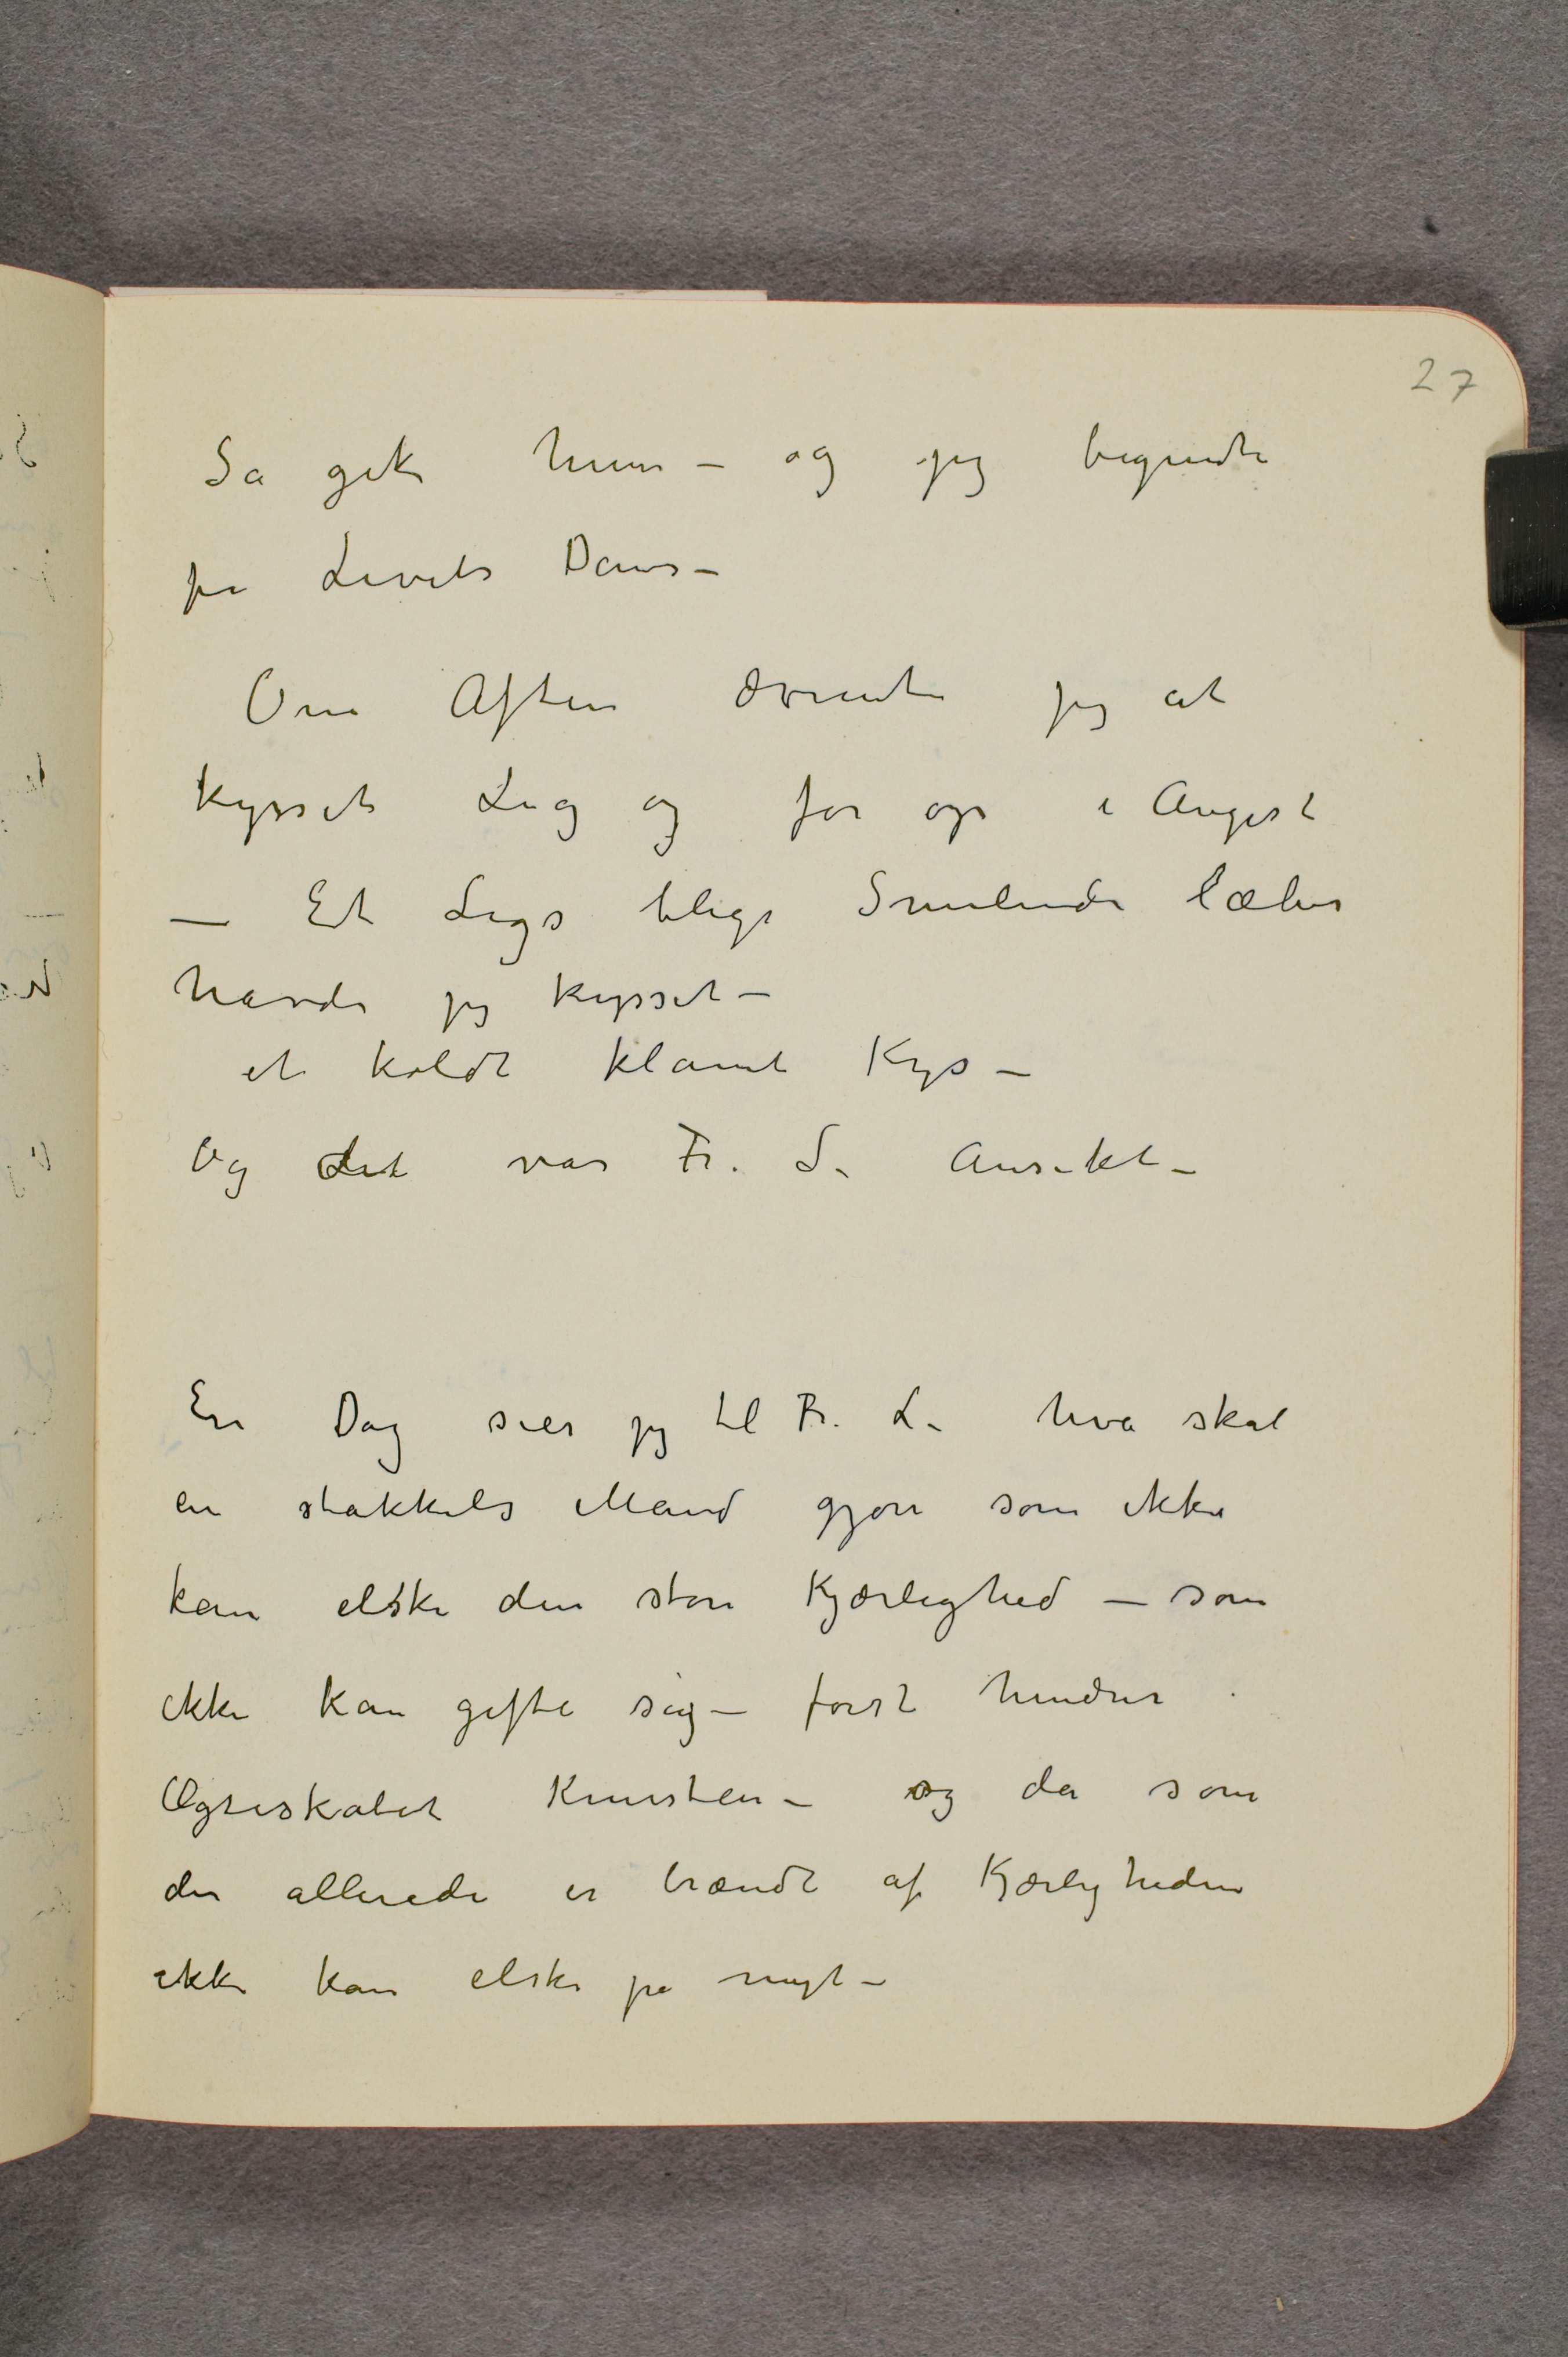 27
Så gik hun – og jeg begyndte
på Livets Dans –
Om Aften drømte jeg at
kysset Lig og for op i Angest
— Et Ligs blege Smilende læber
havde jeg kysset –
et koldt klamt Kys –
Og det var Fr. L. Ansikt –
En Dag sier jeg til Fr. L. hva skal
en stakkels Mand gjøre som ikke
kan elske den store Kjærlighed – som
ikke kan gifte sig – først hindrer
Ægteskabet Kunsten – og da som
den allerede er brændt af Kjærligheden
ikke kan elske på nyt –